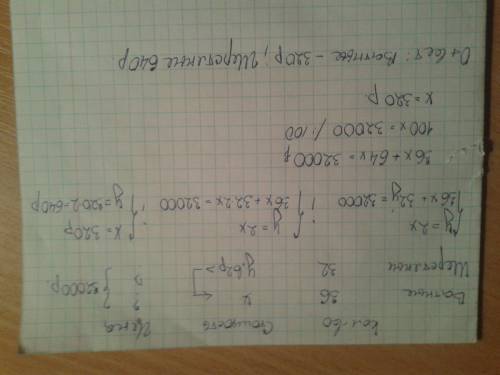 Кол-во Стоимость Цена
Ватные 36 x ?
Шерстяные 32 у, в 2р > ? } 32000р.
{ y = 2x { y = 2x { x = 320р
36x + 32y = 32000 ; 36x + 32·2x = 32000 ; y = 320·2 = 640р
36x + 64x = 32000р
100x = 32000 /:100
x = 320 р.
Ответ: Ватные – 320р; Шерстяные 640р.